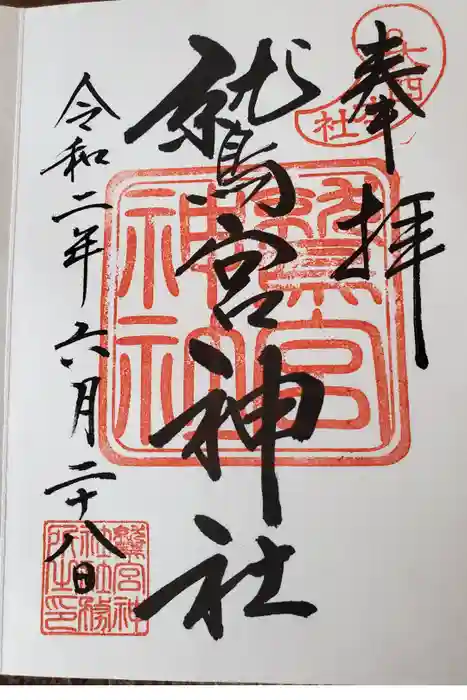 奉拝
鷲宮神社
令和二年六月二十八日
鷲宮神社
鷲宮神社社務所之印